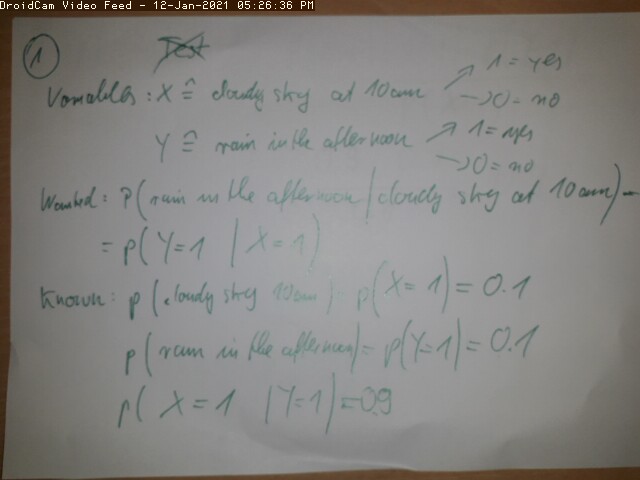 DroidCam Video Feed - 12-Jan-2021 05:26:36 PM
1 Test
Variables: X ≙ cloudy sky at 10am ↗ 1 = yes
→ 0 = no
Y ≙ rain in the afternoon ↗ 1 = yes
→ 0 = no
Wanted: P(rain in the afternoon | cloudy sky at 10am) =
= p(Y=1 | X=1)
Known: p(cloudy sky 10am) = p(X=1) = 0.1
p(rain in the afternoon) = p(Y=1) = 0.1
p(X=1 | Y=1) = 0.9